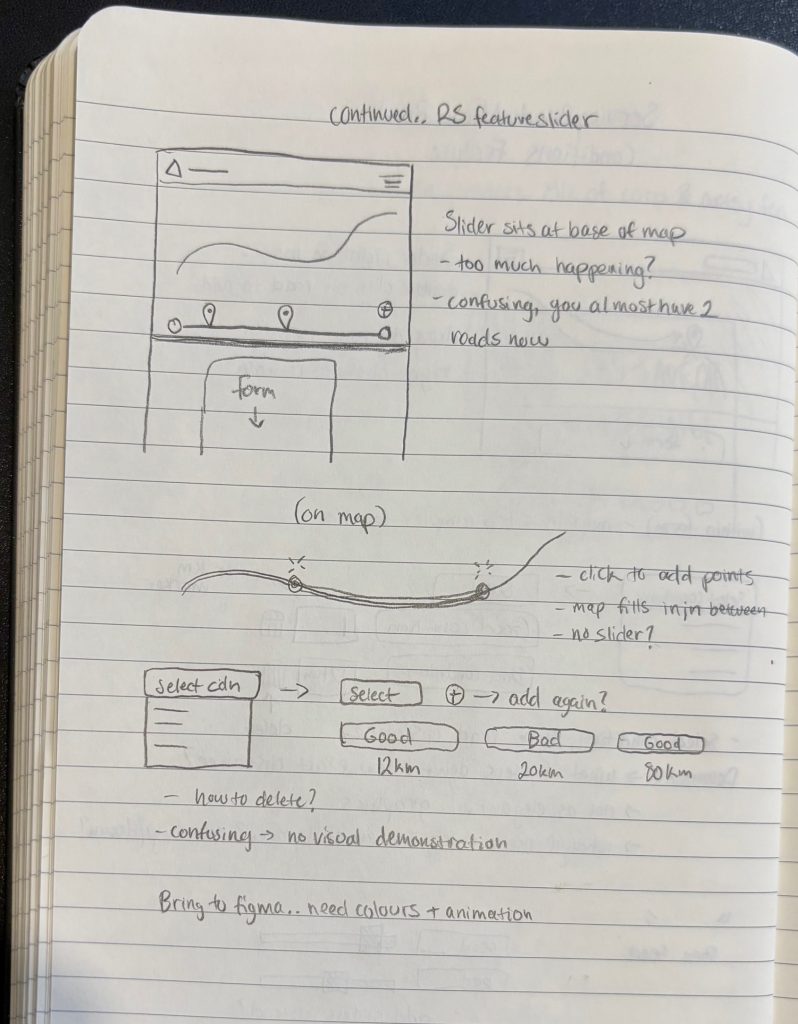 continued.. RS feature slider
Slider sits at base of map
- too much happening?
- confusing, you almost have 2
roads now
form
(on map)
- click to add points
- map fills in in between
- no slider?
Select cdn → Select + → add again?
Good Bad Good
12km 20km 80km
- how to delete?
- confusing → no visual demonstration
Bring to figma.. need colours + animation